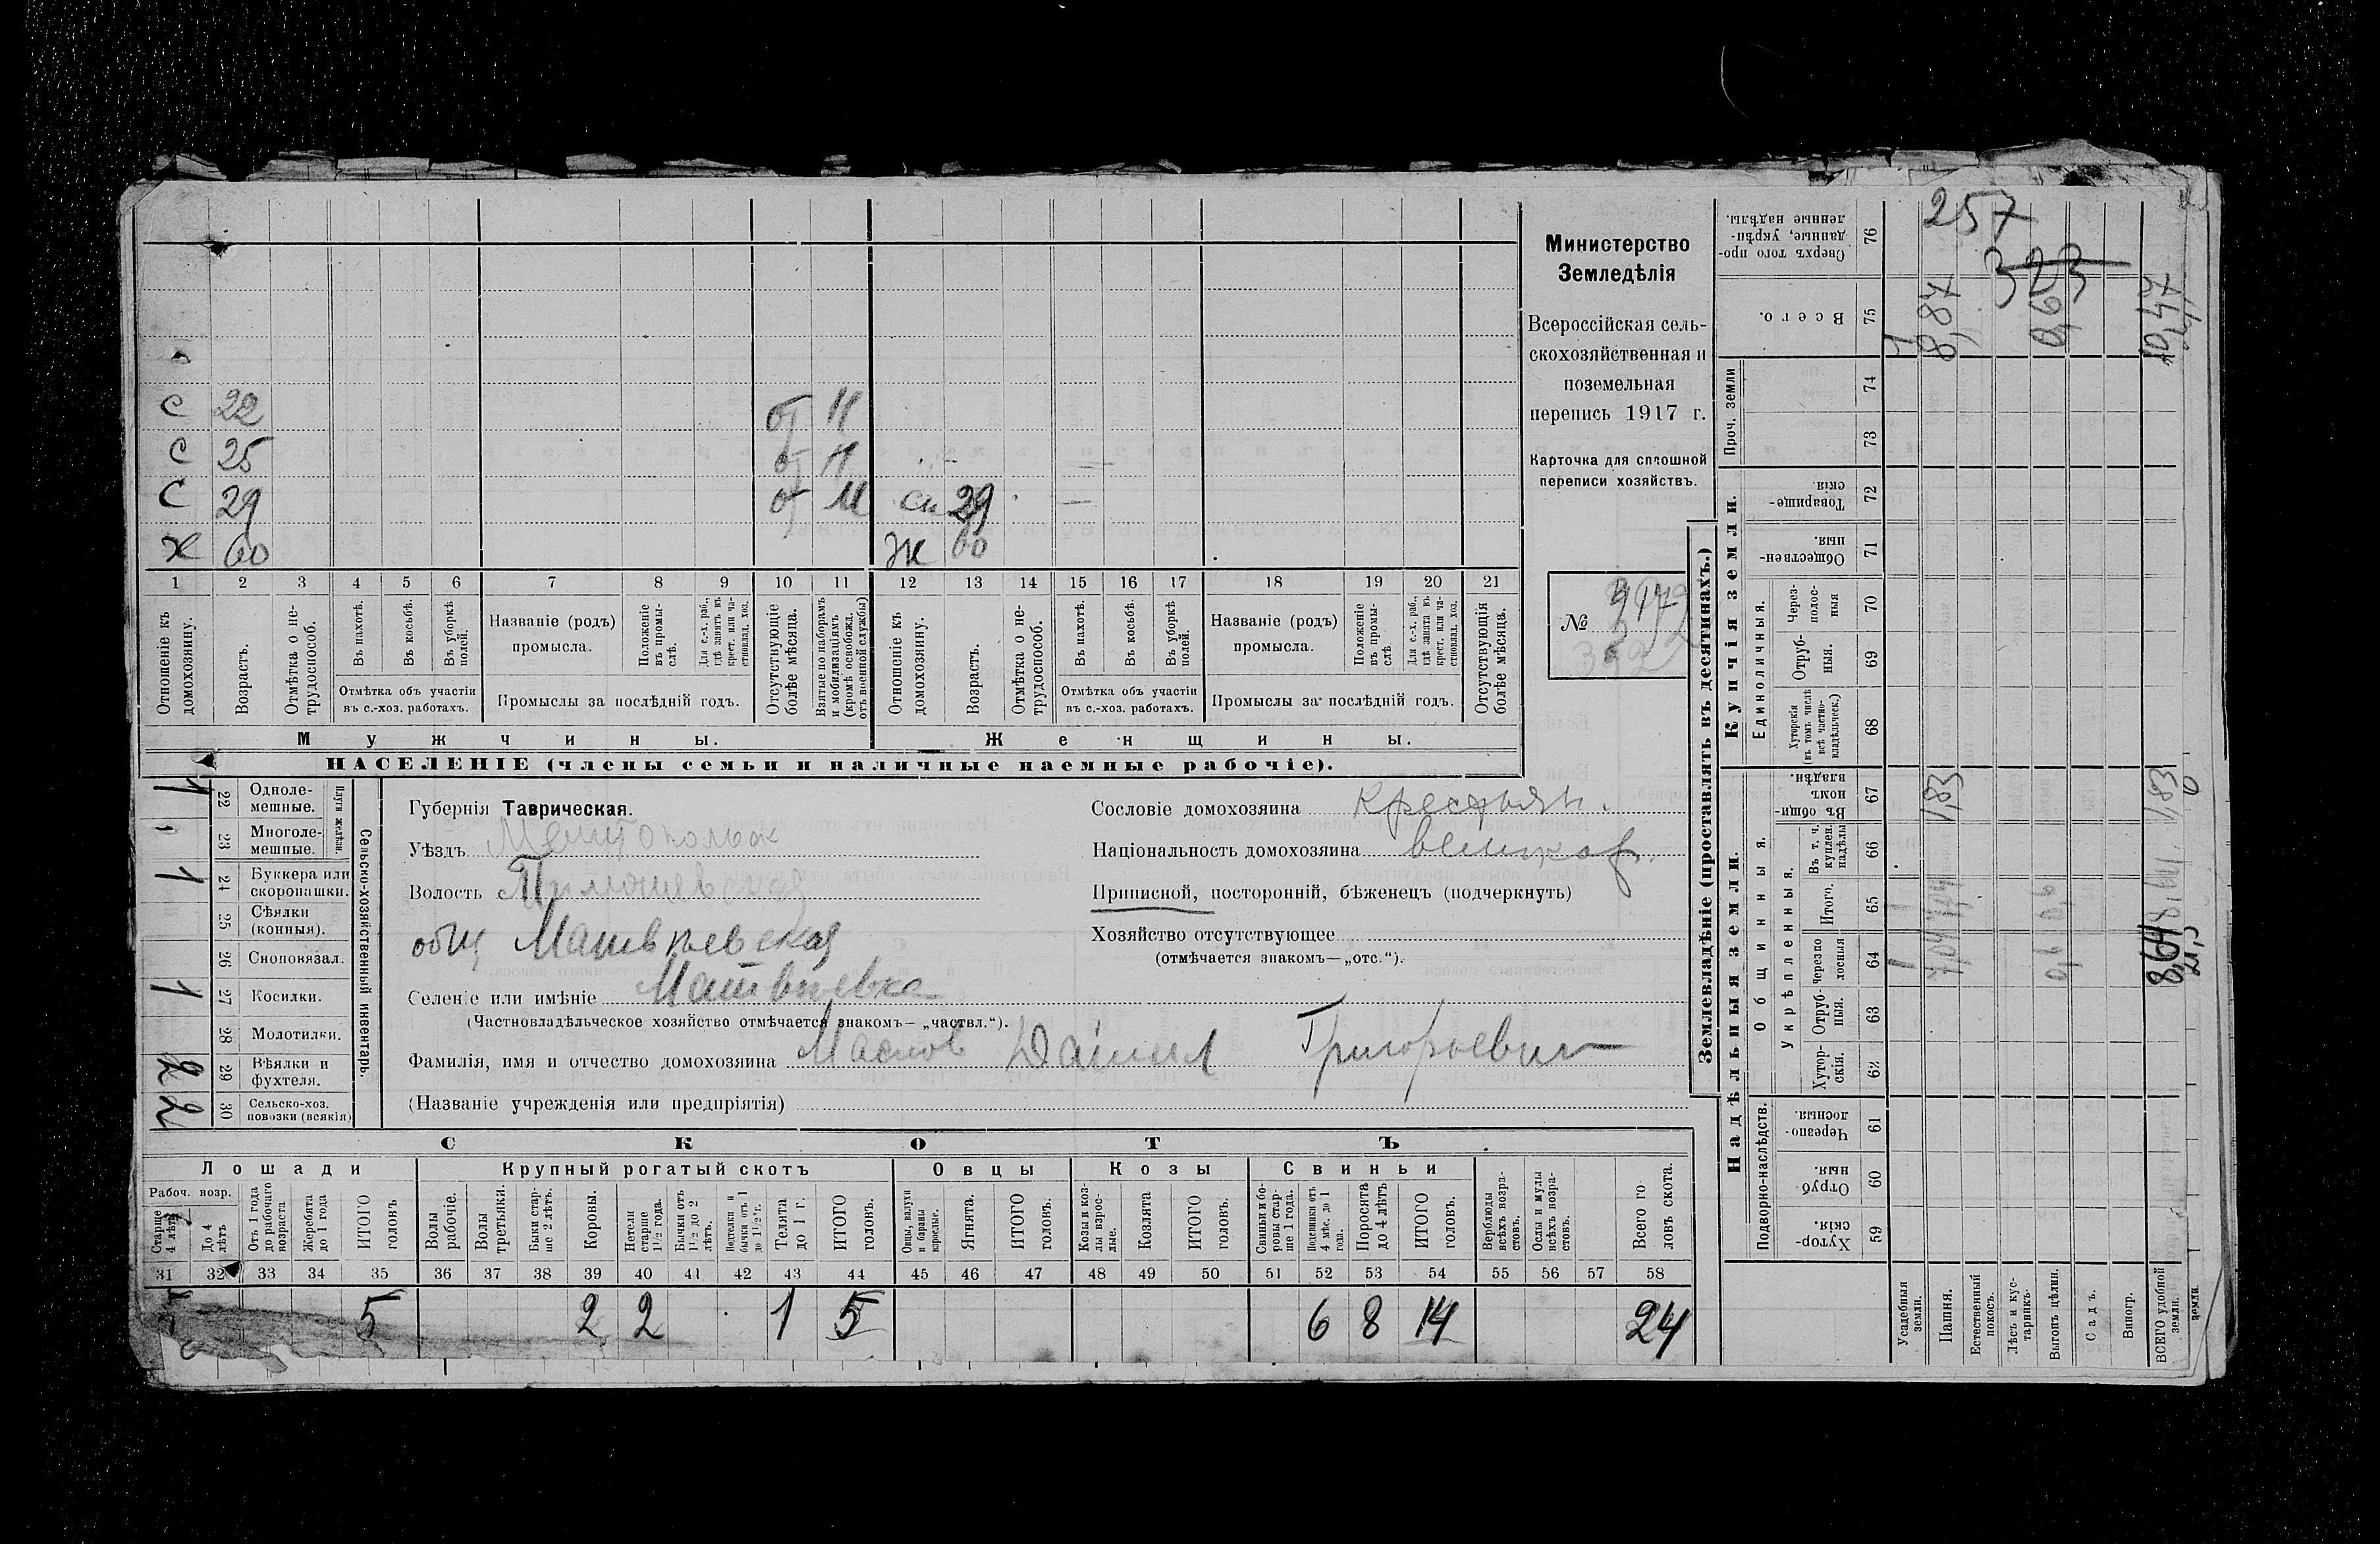 257
323
Министерство
Земледѣлія
Всероссійская сель-
скохозяйственная и
поземельная
перепись 1917 г.
Карточка для сплошной
переписи хозяйствъ.
№
С 22 от
С 25 от
С 29 от сн 29
Ж 60 Ж 60
1 2 3 4 5 6 7 8 9 10 11 12 13 14 15 16 17 18 19 20 21
Отношеніе къ домохозяину.
Возрастъ.
Отмѣтка о не-трудоспособ.
Въ пахотѣ.
Въ косьбѣ.
Въ уборкѣ полей.
Отмѣтка объ участіи
въ с.-хоз. работахъ.
Названіе (родъ)
промысла.
Положеніе въ промы-слѣ.
Для с.-х. раб., гдѣ занятъ въ крест. или ча-стновлад. хоз.
Промыслы за послѣдній годъ.
Отсутствующіе болѣе мѣсяца.
Взятые по наборамъ и мобилизаціямъ (кромѣ освобожд. отъ военной службы)
Отношеніе къ домохозяину.
Возрастъ.
Отмѣтка о не-трудоспособ.
Въ пахотѣ.
Въ косьбѣ.
Въ уборкѣ полей.
Отмѣтка объ участіи
въ с.-хоз. работахъ.
Названіе (родъ)
промысла.
Положеніе въ промы-слѣ
Для с.-х. раб., гдѣ занята въ крест. или ча-стновлад. хоз.
Промыслы за послѣдній годъ.
Отсутствующія болѣе мѣсяца.
Мужчины.
Женщины.
НАСЕЛЕНІЕ (члены семьи и наличные наемные рабочіе).
Сельско-хозяйственный инвентарь.
Плуги желѣзн.
1 22 Одноле-мешные.
23 Многоле-мешные.
1 24 Буккера или скоропашки.
25 Сѣялки (конныя).
26 Сноповязал.
1 27 Косилки.
28 Молотилки.
2 29 Вѣялки и фухтеля.
2 30 Сельско-хоз. повозки (всякія)
Губернія Таврическая.
Уѣздъ Мелитопольск
Волость Тимошевская
общ Матвѣевская
Селеніе или имѣніе Матвѣевка
(Частновладѣльческое хозяйство отмѣчается знакомъ— „частвл.“).
Фамилія, имя и отчество домохозяина Маслов Данил Григорьевич
(Названіе учрежденія или предпріятія)
Сословіе домохозяина Крестьян.
Національность домохозяина великор.
Приписной, посторонній, бѣженецъ (подчеркнуть)
Хозяйство отсутствующее
(отмѣчается знакомъ—„отс.“).
СКОТЪ.
Лошади
Крупный рогатый скотъ
Овцы
Козы
Свиньи
Рабоч. возр.
Старше 4 лѣтъ
До 4 лѣтъ
Отъ 1 года до рабочаго возраста
Жеребята до 1 года
ИТОГО головъ
Волы рабочіе.
Волы третьяки.
Быки стар-ше 2 лѣтъ.
Коровы.
Нетели старше 1½ года.
Бычки отъ 1½ до 2 лѣтъ.
Подтелки и бычки отъ 1 до 1½ г.
Телята до 1 г.
ИТОГО головъ.
Овцы, валухи и бараны взрослые.
Ягнята.
ИТОГО головъ.
Козы и коз-лы взрос-лые.
Козлята
ИТОГО головъ.
Свиньи и бо-ровы стар-ше 1 года.
Подсвинки отъ 4 мѣс. до 1 года.
Поросята до 4 лѣтъ
ИТОГО головъ.
Верблюды всѣхъ возра-стовъ.
Ослы и мулы всѣхъ возра-стовъ.
Всего го-ловъ скота.
31 32 33 34 35 36 37 38 39 40 41 42 43 44 45 46 47 48 49 50 51 52 53 54 55 56 57 58
5 2 2 1 5 6 8 14 24
Землевладѣніе (проставлять въ десятинахъ.)
Купчія земли.
Надѣльныя земли.
Сверхъ того про-данные, укрѣп-ленные надѣлы. 76
Всего. 75 8,87
Проч. земли
74
73
Товарище-скія. 72
Обществен-ныя. 71
Единоличныя.
Через-полос-ныя 70
Отруб-ныя. 69
Хуторскія (въ томъ числѣ всѣ частно-владѣльческ.) 68
Общинныя.
Въ общин. влад. 67 1,83 1,83
Укрѣпленныя.
Въ т. ч. куплен. надѣлы 66
Итого. 65
Черезпо-лосныя 64 7,04
Отруб-ныя. 63
Хутор-скія. 62
Подворно-наслѣдств.
Черезпо-лосныя 61
Отруб-ныя. 60
Хутор-скія. 59
Усадебныя земли.
Пашня.
Естественный покосъ.
Лѣсъ и кус-тарникъ.
Выгонъ цѣлин.
Садъ.
Виногр.
ВСЕГО удобной земли.